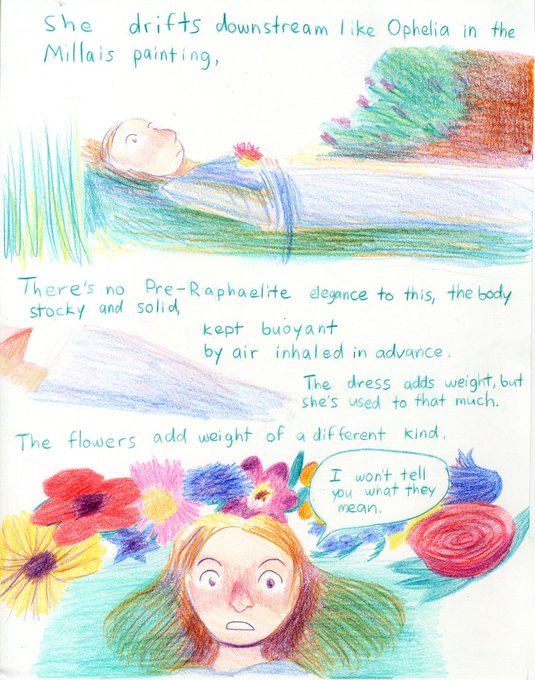 She drifts downstream like Ophelia in the
Millais painting,
There's no Pre-Raphaelite elegance to this, the body
stocky and solid,
kept buoyant
by air inhaled in advance.
The dress adds weight, but
she's used to that much.
The flowers add weight of a different kind.
I won't tell
you what they
mean.